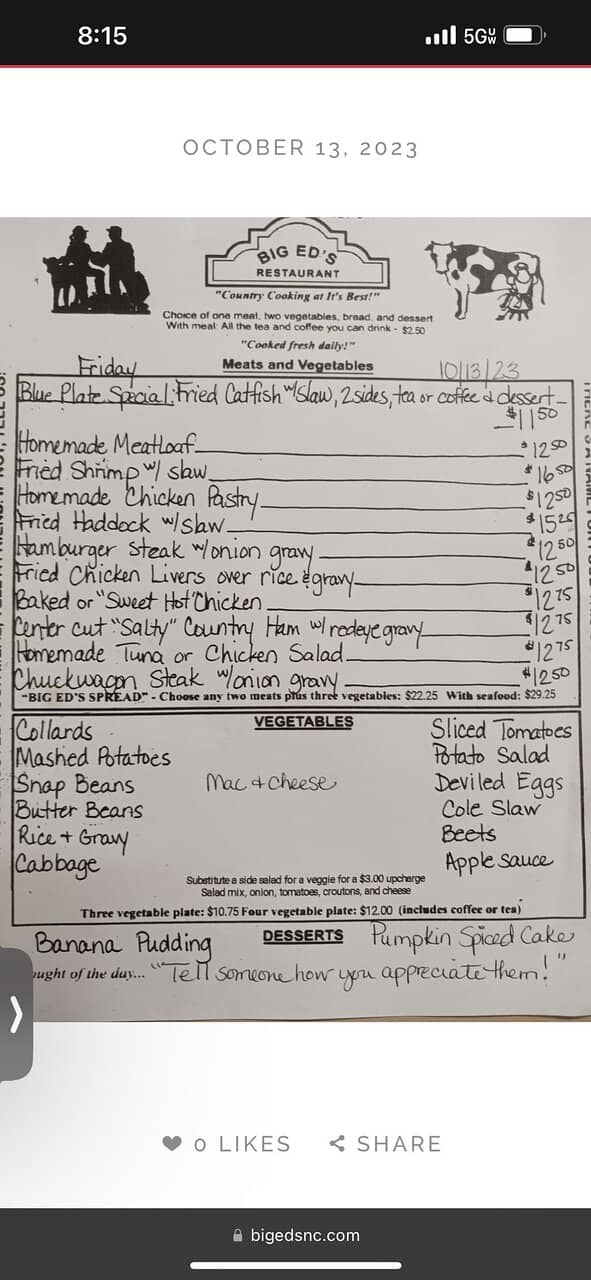 8:15
5GUW
OCTOBER 13, 2023
BIG ED'S
RESTAURANT
"Country Cooking at It's Best!"
Choice of one meat, two vegetables, bread, and dessert
With meal: All the tea and coffee you can drink - $2.50
"Cooked fresh daily!"
Friday Meats and Vegetables 10/13/23
Blue Plate Special: Fried Catfish w/slaw, 2 sides, tea or coffee & dessert
$11.50
Homemade Meatloaf $12.50
Fried Shrimp w/ slaw $16.50
Homemade Chicken Pastry $12.50
Fried Haddock w/slaw $15.25
Hamburger Steak w/onion gravy $12.50
Fried Chicken Livers over rice & gravy $12.50
Baked or "Sweet Hot" Chicken $12.75
Center cut "Salty" Country Ham w/ redeye gravy $12.75
Homemade Tuna or Chicken Salad $12.75
Chuckwagon Steak w/onion gravy $12.50
"BIG ED'S SPREAD" - Choose any two meats plus three vegetables: $22.25 With seafood: $29.25
VEGETABLES
Collards
Mashed Potatoes
Snap Beans
Butter Beans
Rice + Gravy
Cabbage
Mac + Cheese
Sliced Tomatoes
Potato Salad
Deviled Eggs
Cole Slaw
Beets
Apple Sauce
Substitute a side salad for a veggie for a $3.00 upcharge
Salad mix, onion, tomatoes, croutons, and cheese
Three vegetable plate: $10.75 Four vegetable plate: $12.00 (includes coffee or tea)
DESSERTS
Banana Pudding
Pumpkin Spiced Cake
ought of the day... "Tell someone how you appreciate them!"
0 LIKES SHARE
bigedsnc.com